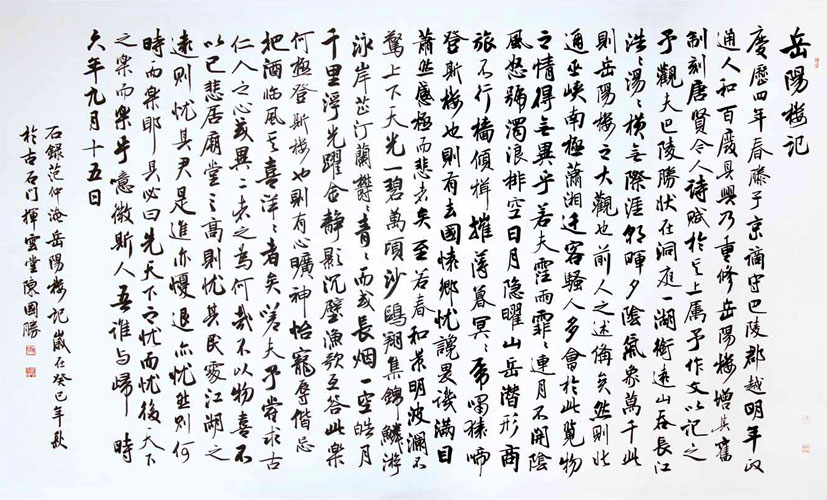 岳陽樓記
慶歷四年春滕子京謫守巴陵郡越明年政
通人和百廢具興乃重修岳陽樓增其舊
制刻唐賢今人詩賦於其上属予作文以記之
予觀夫巴陵勝狀在洞庭一湖銜遠山吞長江
浩〻湯〻橫無際涯朝暉夕陰氣象萬千此
則岳陽樓之大觀也前人之述備矣然則北
通巫峽南極瀟湘迁客騷人多會於此覽物
之情得無異乎若夫霪雨霏〻連月不開陰
風怒號濁浪排空日月隐曜山岳潛形商
旅不行檣傾楫摧薄暮冥〻虎嘯猿啼
登斯樓也則有去國懷鄉忧讒畏譏滿目
蕭然感極而悲者矣至若春和景明波瀾不
驚上下天光一碧萬頃沙鷗翔集錦鱗游
泳岸芷汀蘭鬱〻青〻而或長烟一空皓月
千里浮光躍金靜影沉璧漁歌互答此樂
何極登斯樓也則有心曠神怡寵辱偕忘
把酒临風其喜洋〻者矣嗟夫予嘗求古
仁人之心或異二者之為何哉不以物喜不
以己悲居廟堂之高則忧其民處江湖之
遠則忧其君是進亦忧退亦忧然則何
時而樂耶其必曰先天下之忧而忧後天下
之樂而樂乎噫微斯人吾誰与歸 時
六年九月十五日
石錄范仲淹岳陽樓記歲在癸巳年秋
於古石门揮雲堂陳國勝